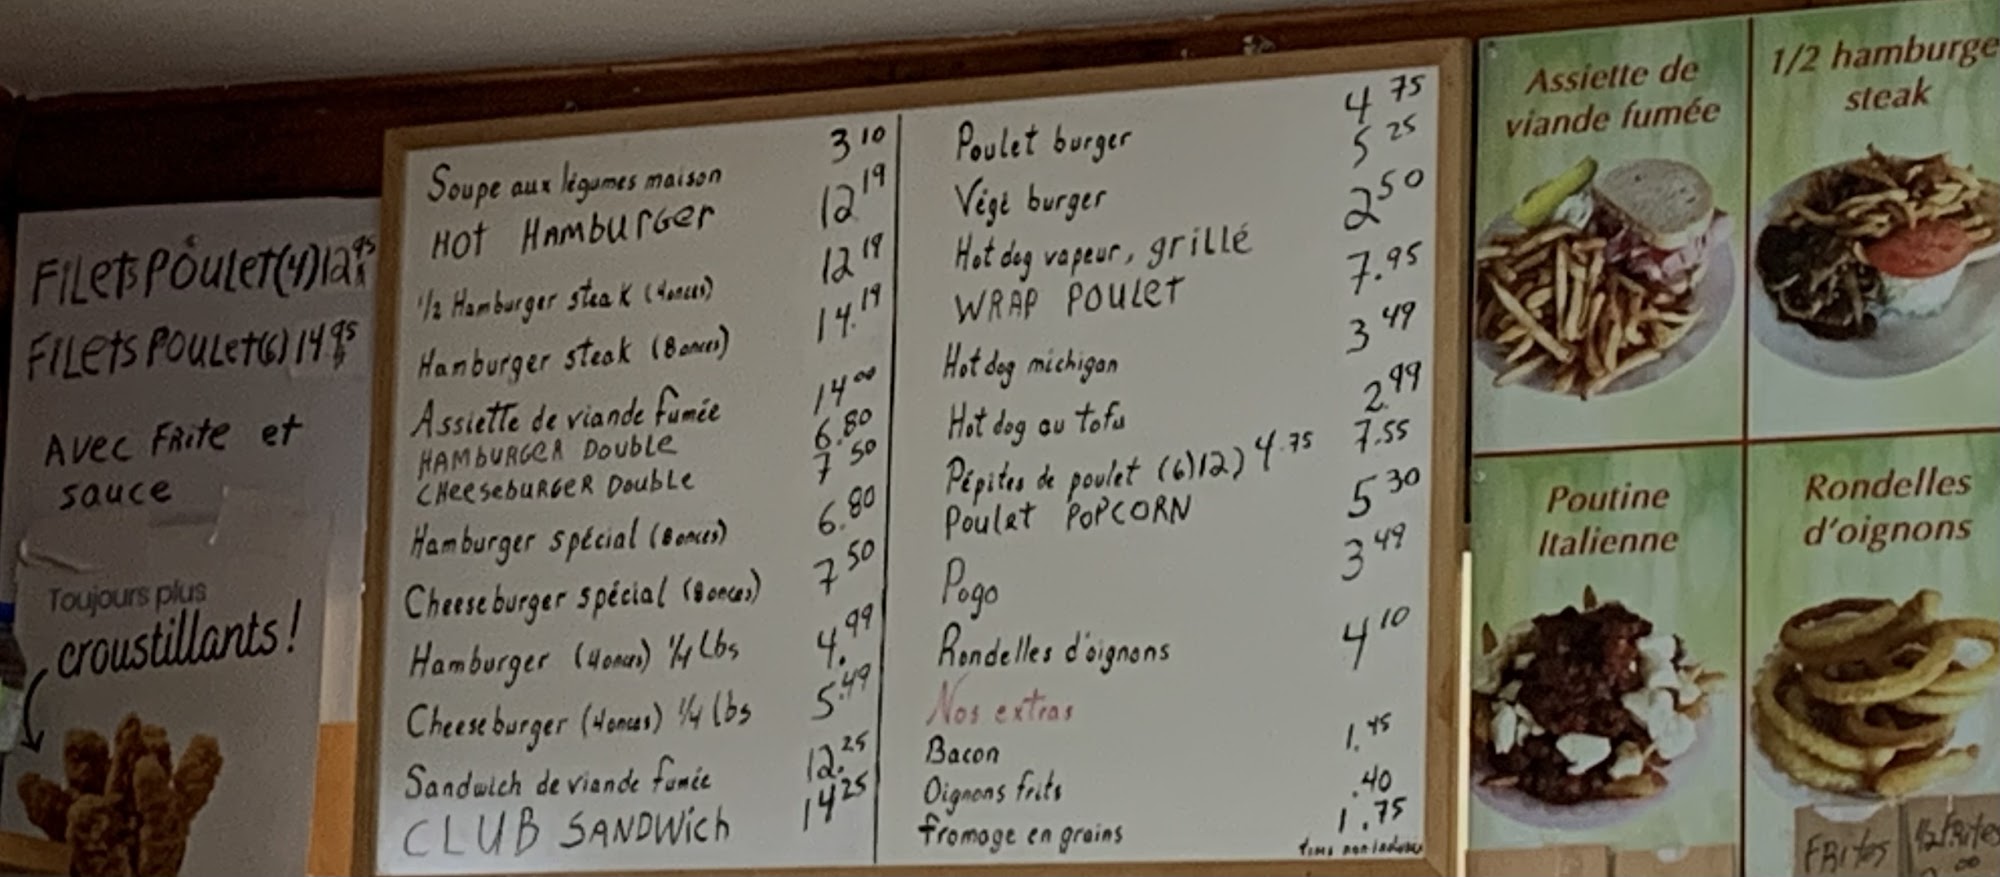 FILETS POULET (4) 12 95
FILETS POULET (6) 14 95
AVEC FRITE et
SAUCE
Toujours plus
croustillants!
Soupe aux légumes maison 3 10
HOT HAMBURGER 12 19
1/2 Hamburger steak (4 onces) 12 19
Hamburger steak (8 onces) 14.19
Assiette de viande fumée 14 00
HAMBURGER Double 6.80
CHeeseBURGER Double 7 50
Hamburger spécial (8 onces) 6.80
Cheeseburger spécial (8 onces) 7 50
Hamburger (4 onces) 1/4 Lbs 4.99
Cheeseburger (4 onces) 1/4 lbs 5.49
Sandwich de viande fumée 12.25
CLUB SANDWich 14 25
Poulet burger 4 75
Végé burger 5 25
Hot dog vapeur, grillé 2 50
WRAP POULET 7.95
Hot dog michigan 3 49
Hot dog au tofu 2.99
Pépites de poulet (6)12) 4.75 7.55
Poulet POPCORN 5 30
Pogo 3 49
Rondelles d'oignons 4 10
Nos extras
Bacon 1.45
Oignons frits .40
fromage en grains 1.75
Assiette de
viande fumée
1/2 hamburge
steak
Poutine
Italienne
Rondelles
d'oignons
FRites
1/2 FRites